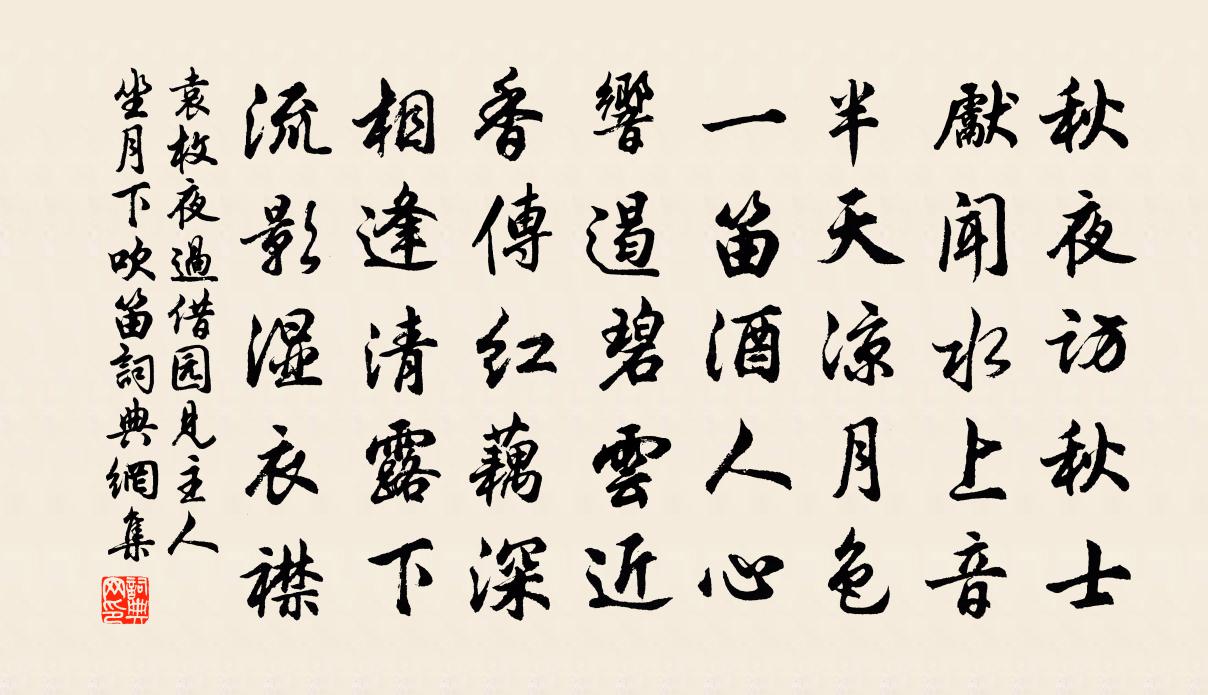 秋夜访秋士
獻闻水上音
半天涼月色
一笛酒人心
響遏碧雲近
香傳红藕深
相逢清露下
流影湿衣襟
袁枚夜過借园见主人
坐月下吹笛詞典網集
詞典网印